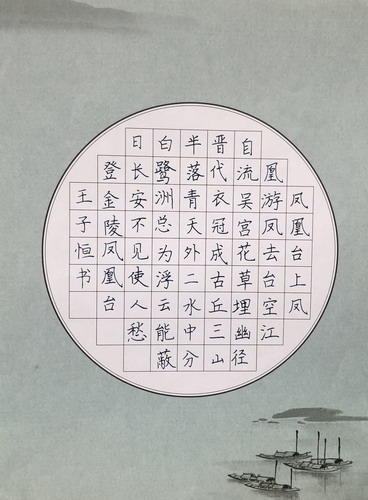 凤凰台上凤
凰游凤去台空江
自流吴宫花草埋幽径
晋代衣冠成古丘三山
半落青天外二水中分
白鹭洲总为浮云能蔽
日长安不见使人愁
登金陵凤凰台
王子恒书